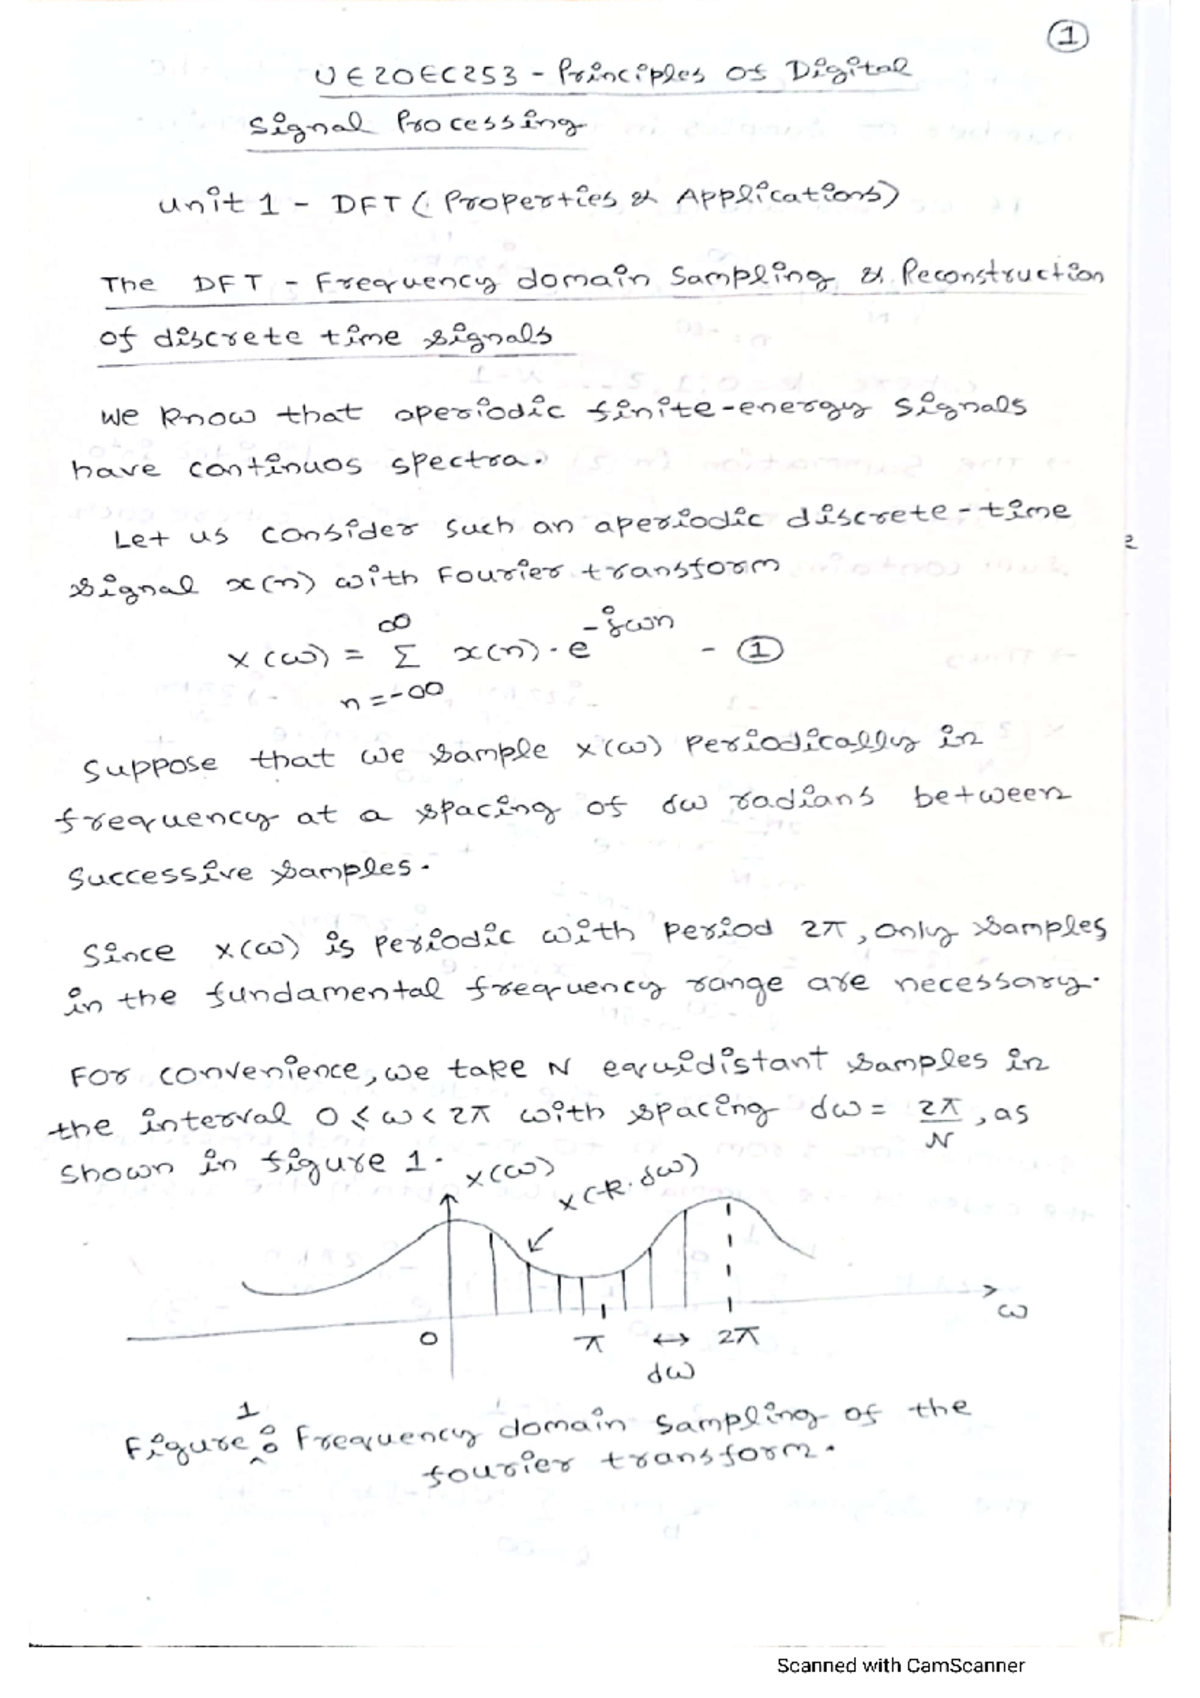 1
UE20EC253 - Principles of Digital
Signal Processing
Unit 1 - DFT ( Properties & Applications)
The DFT - Frequency domain Sampling & Reconstruction
of discrete time signals
We know that aperiodic finite-energy signals
have continuos spectra.
Let us consider such an aperiodic discrete-time
signal x(n) with Fourier transform
X(ω) = Σ_{n=-∞}^{∞} x(n)·e^{-jωn} - ①
Suppose that we sample X(ω) periodically in
frequency at a spacing of δω radians between
successive samples.
Since X(ω) is periodic with period 2π, only samples
in the fundamental frequency range are necessary.
For convenience, we take N equidistant samples in
the interval 0 ≤ ω < 2π with spacing δω = 2π/N, as
shown in figure 1.
X(ω)
X(k·δω)
0 π 2π ω
δω
Figure 1: Frequency domain sampling of the
fourier transform.
Scanned with CamScanner